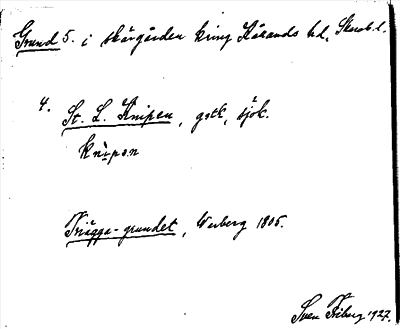 Grund 5. i skärgården kring Kåkands hd, Skarab. l.
4. St. L. Knipen, gstk, sjök.
knìpen
Trägga-grundet, Werberg 1805.
Sven Friberg 1927.